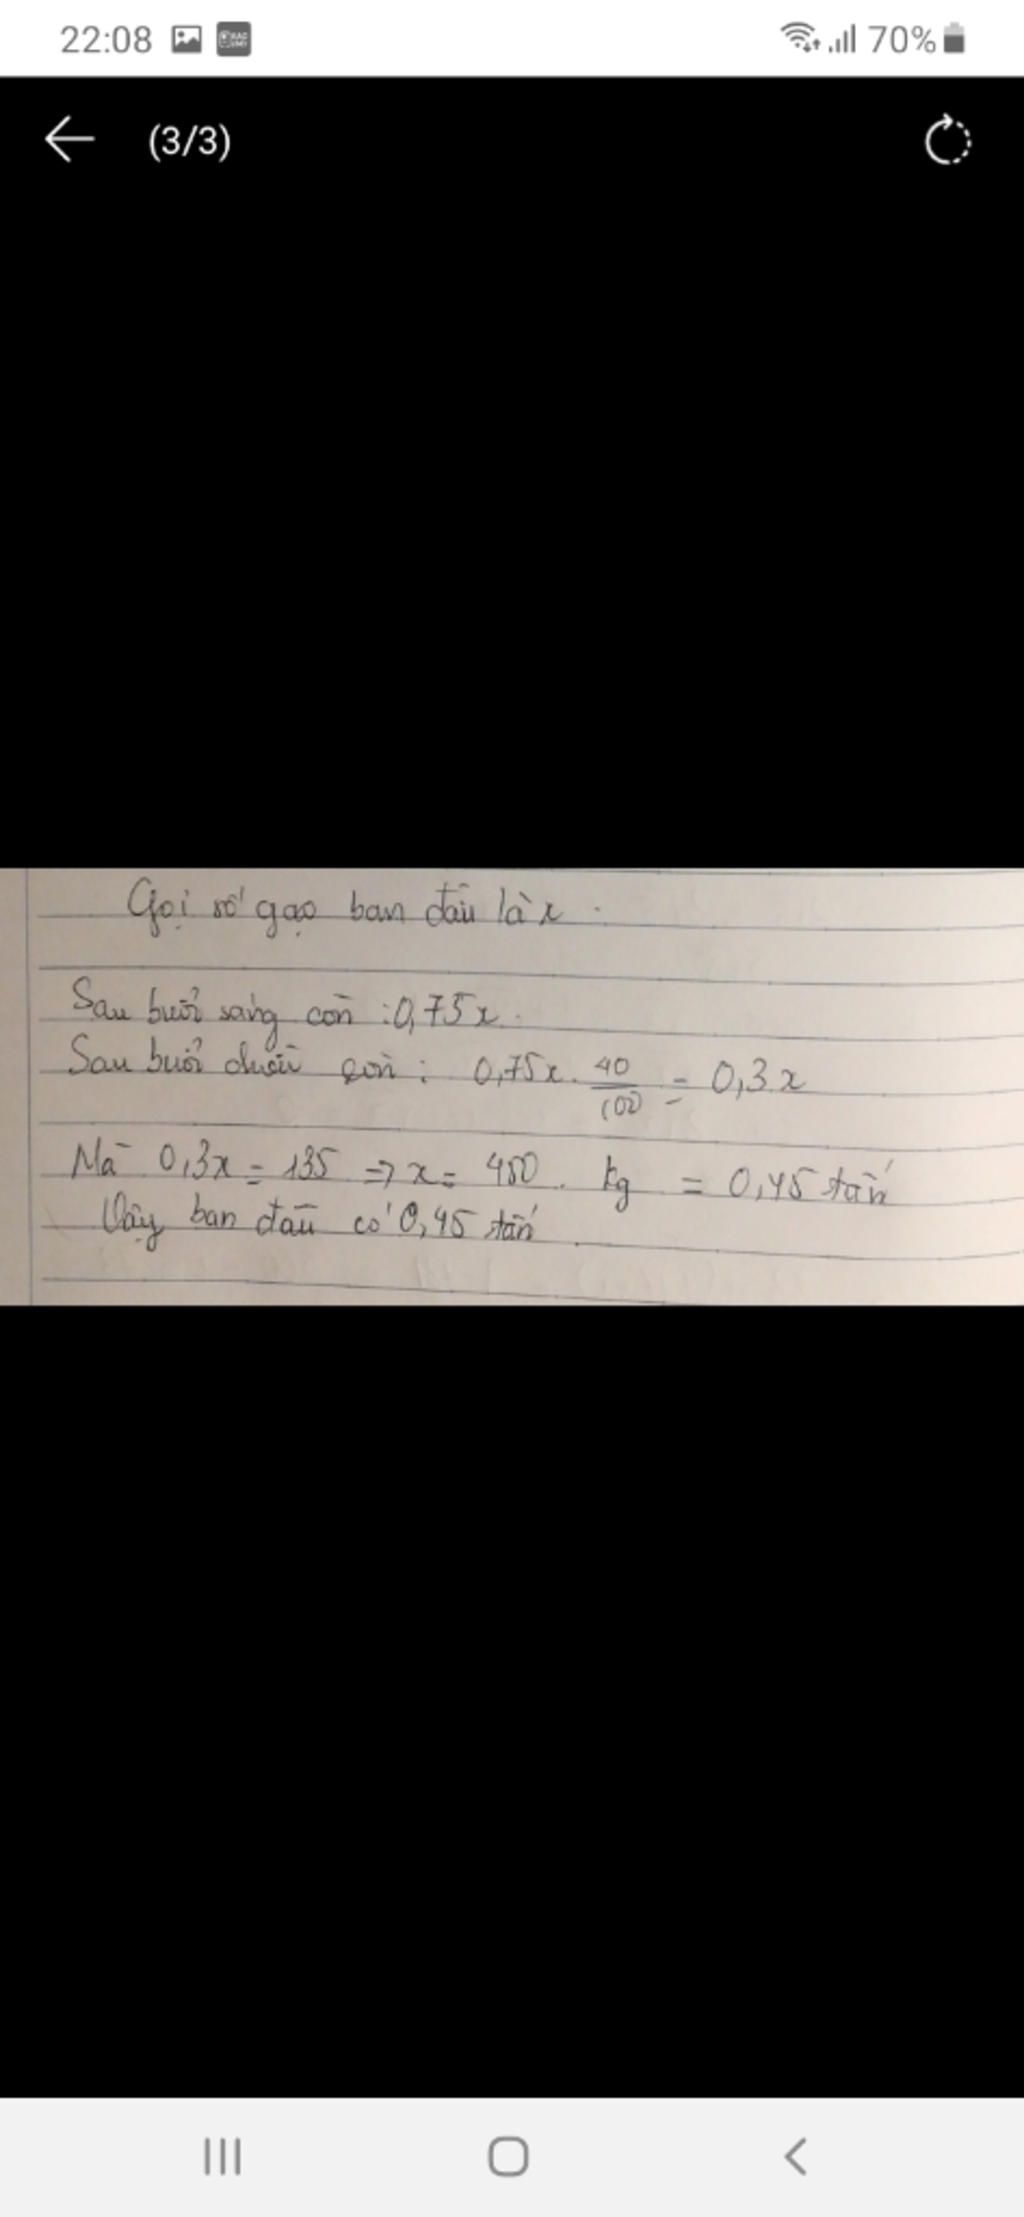 22:08 70%
(3/3)
Gọi số gạo ban đầu là x.
Sau buổi sáng còn : 0,75x.
Sau buổi chiều còn : 0,75x. 40/100 = 0,3x
Mà 0,3x = 135 => x = 450. kg = 0,45 tấn
Vậy ban đầu có 0,45 tấn